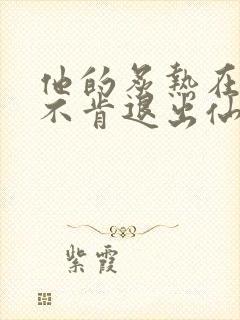 他的炙热在
不肯退出仙
紫霞